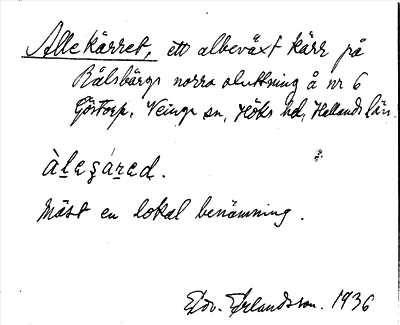 Allekärret, ett albeväxt kärr på
Bålsbärgs norra sluttning å nr 6
Göstorp, Veinge sn, Höks hd, Hallands län.
àlegáred.
Mäst en lokal benämning.
Edv. Erlandsson. 1936